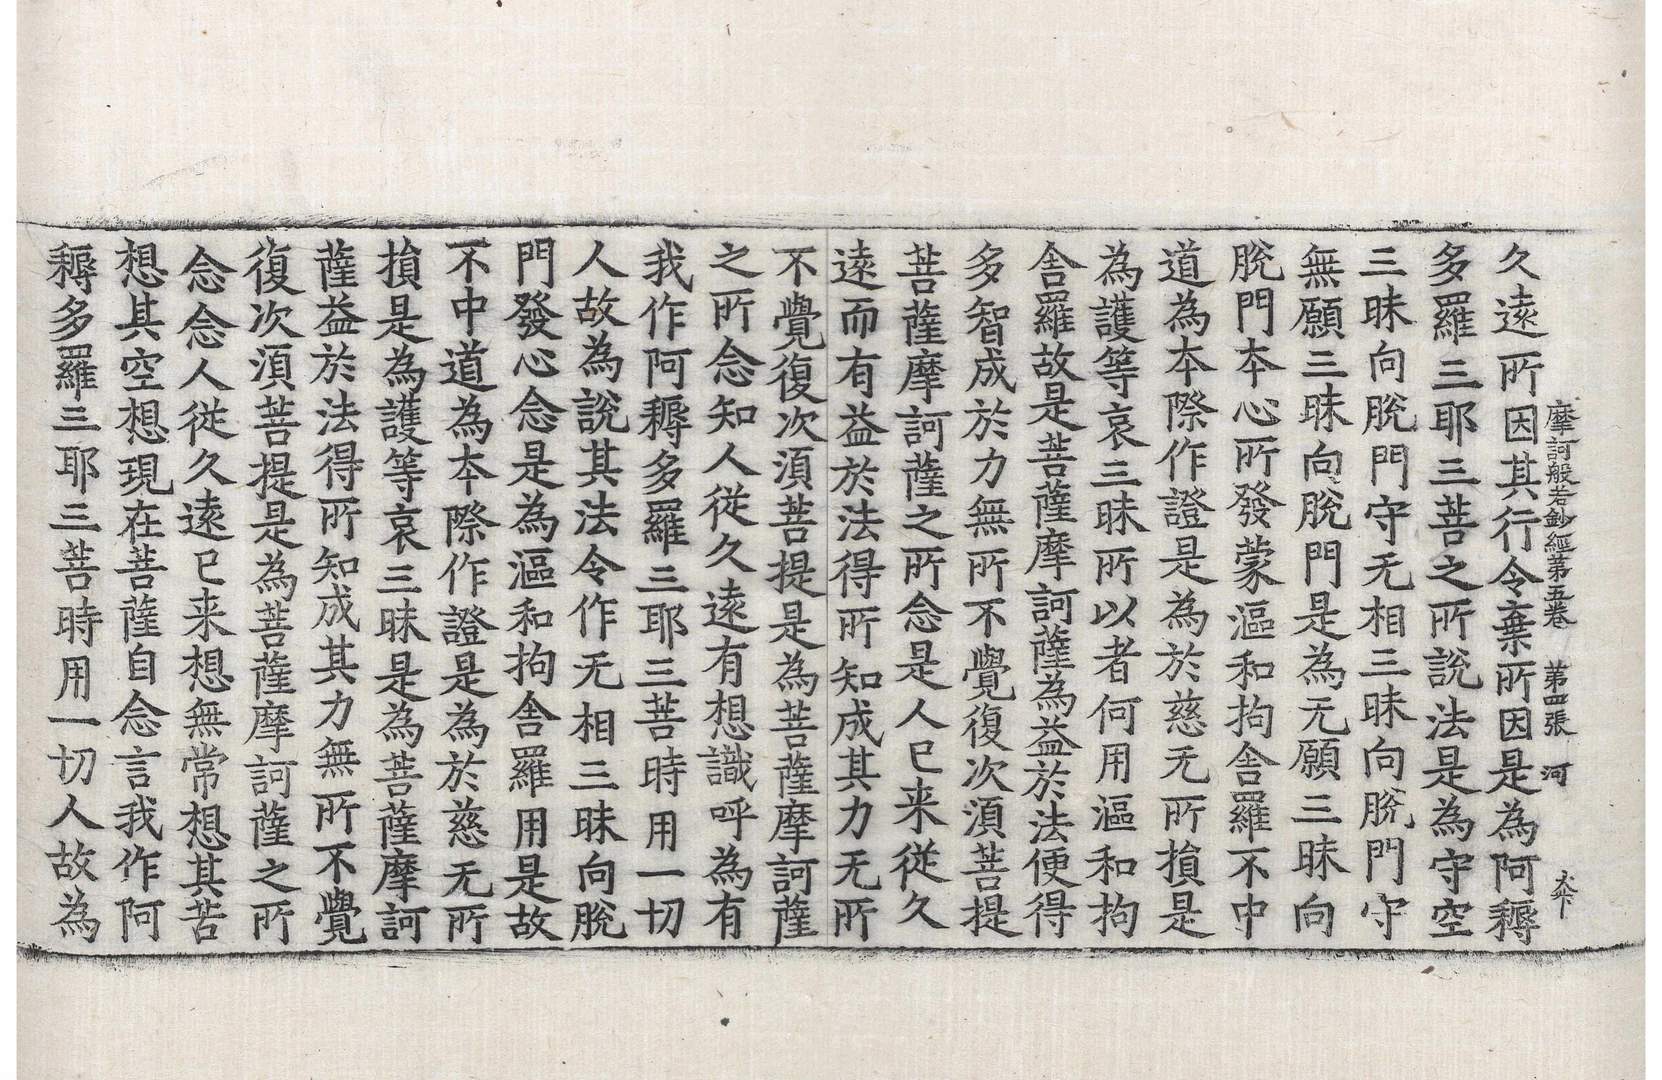 摩訶般若鈔經第五卷 第四張 河
久遠所因其行令棄所因是為阿耨
多羅三耶三菩之所說法是為守空
三昧向脫門守无相三昧向脫門守
無願三昧向脫門是為无願三昧向
脫門本心所發蒙漚和拘舍羅不中
道為本際作證是為於慈无所損是
為護等哀三昧所以者何用漚和拘
舍羅故是菩薩摩訶薩為益於法便得
多智成於力無所不覺復次湏菩提
菩薩摩訶薩之所念是人已来從久
遠而有益於法得所知成其力无所
不覺復次湏菩提是為菩薩摩訶薩
之所念知人從久遠有想識呼為有
我作阿耨多羅三耶三菩時用一切
人故為說其法令作无相三昧向脫
門發心念是為漚和拘舍羅用是故
不中道為本際作證是為於慈无所
損是為護等哀三昧是為菩薩摩訶
薩益於法得所知成其力無所不覺
復次湏菩提是為菩薩摩訶薩之所
念念人從久遠已来想無常想其苦
想其空想現在菩薩自念言我作阿
耨多羅三耶三菩時用一切人故為